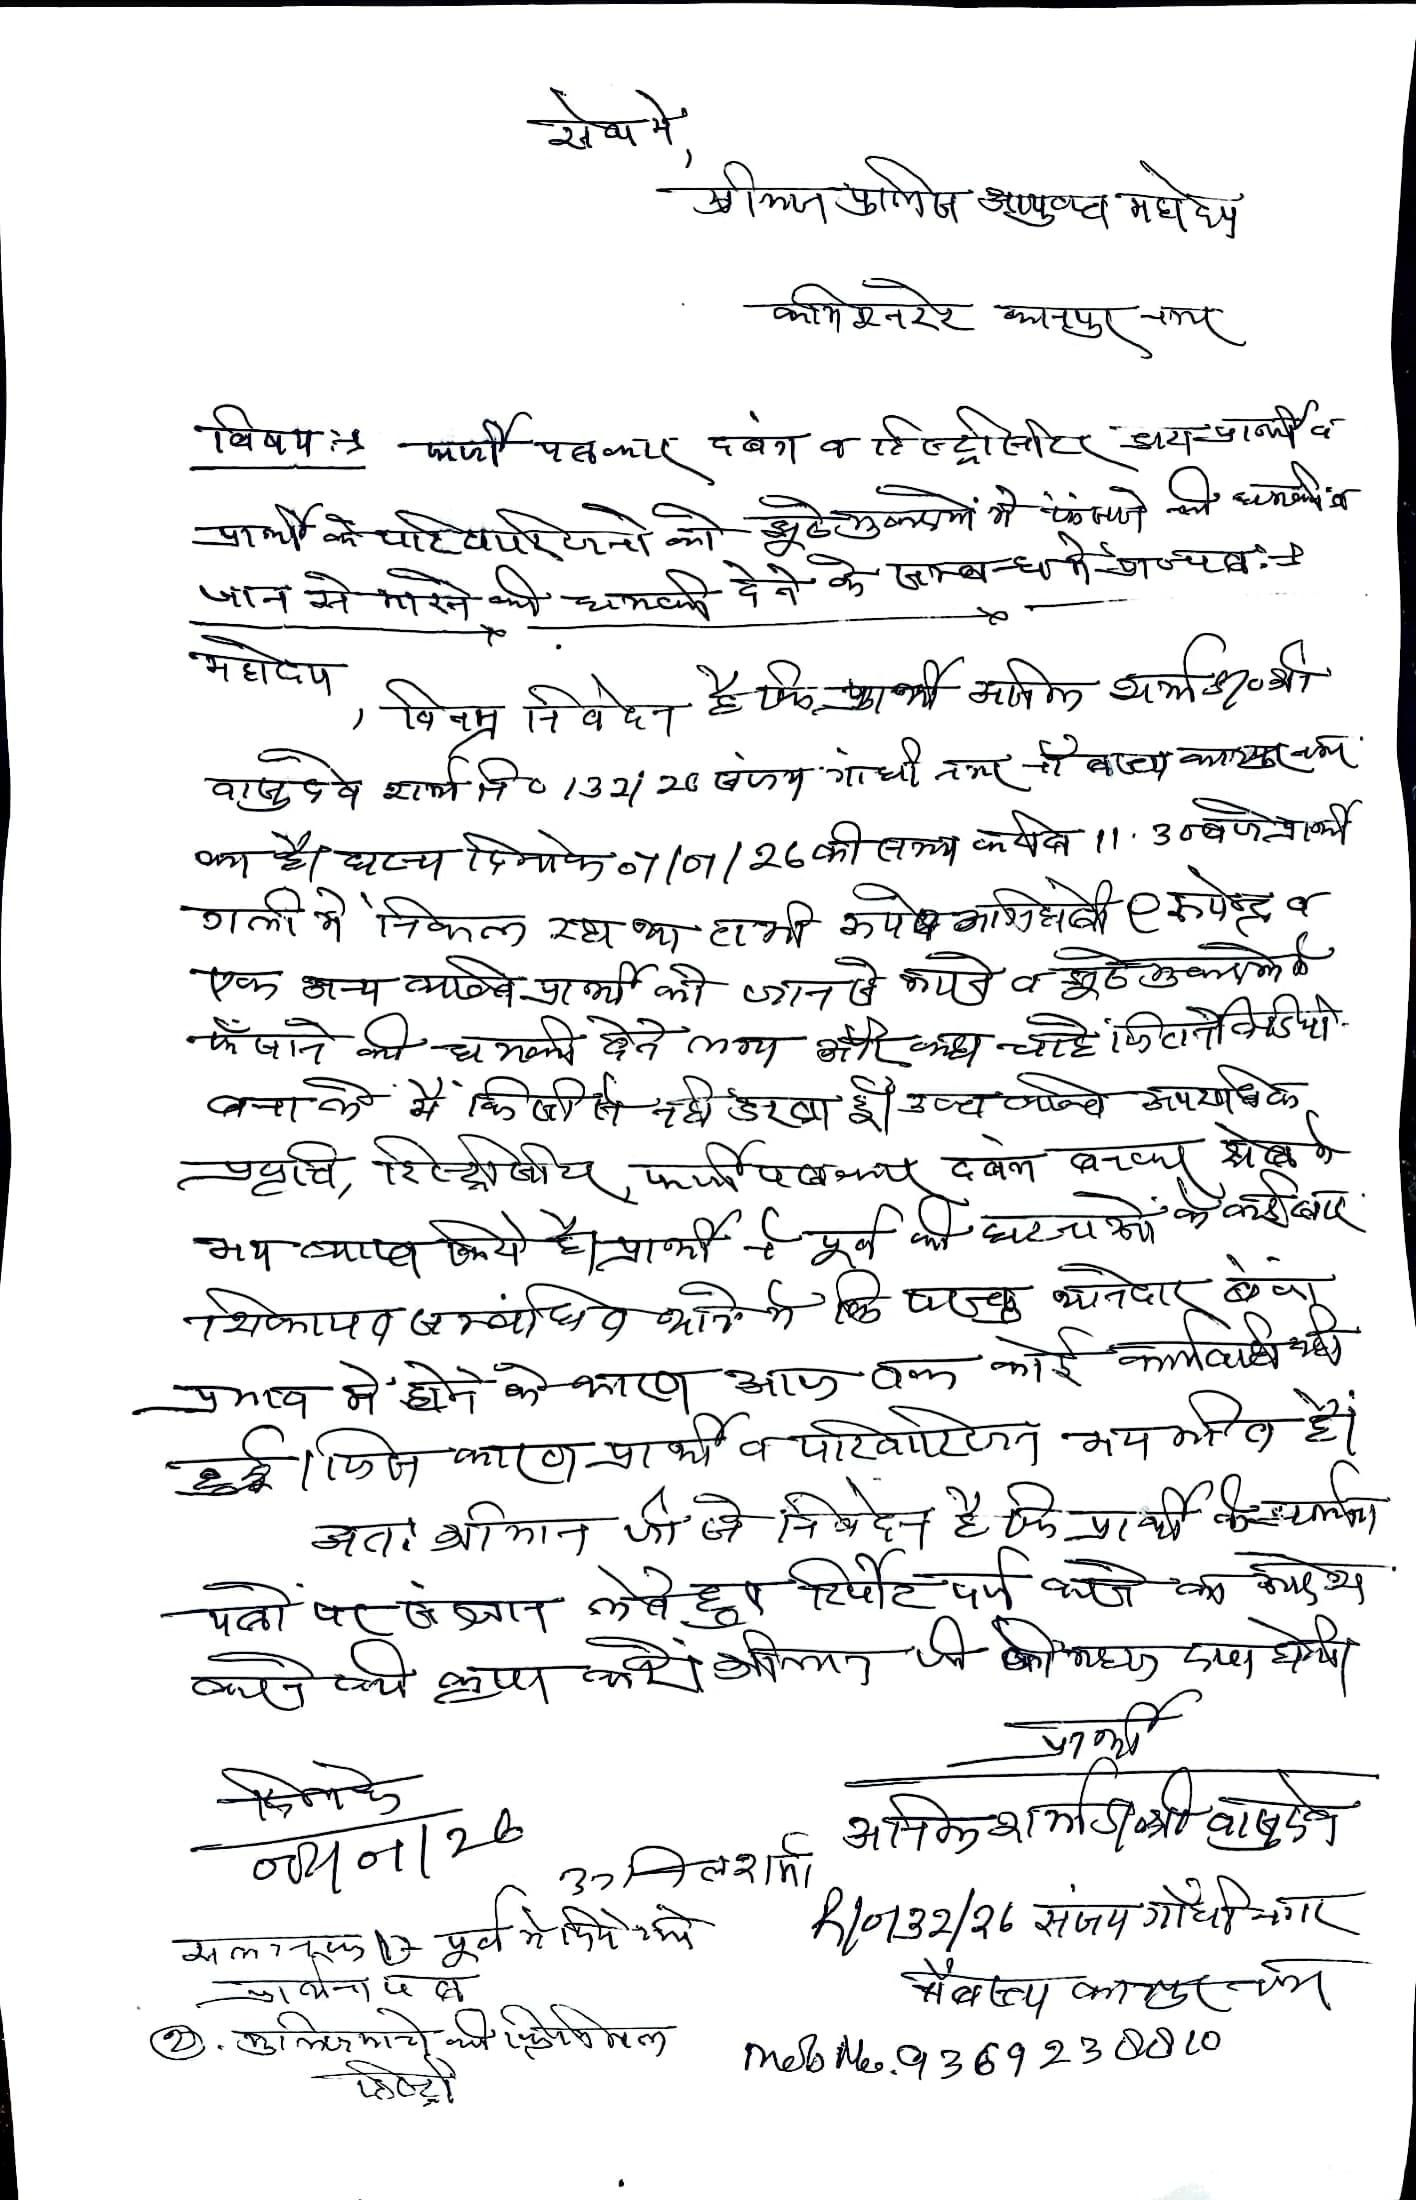 सेवा में,
श्रीमान पुलिस आयुक्त महोदय
कमिश्नरेट कानपुर नगर
विषय :- फर्जी पत्रकार दबंग व हिस्ट्रीशीटर द्वारा प्रार्थी व
प्रार्थी के परिवारीजनों को झूठे मुकदमों में फंसाने की धमकी व
जान से मारने की धमकी देने के सम्बन्ध में
महोदय
, विनम्र निवेदन है कि प्रार्थी अनिल शर्मा S/० श्री
वासुदेव शर्मा नि० 132/26 संजय गांधी नगर नौबस्ता कानपुर नगर
का है। घटना दिनांक 07/01/26 की समय करीब 11.30 बजे प्रार्थी
गली में निकल रहा था तभी रूपेश अग्निहोत्री @ रूपेन्द्र व
एक अन्य व्यक्ति प्रार्थी को जान से मारने व झूठे मुकदमे में
फँसाने की धमकी देने लगा और कहा चाहे जितने विडियो
बना लो मैं किसी से नहीं डरता हूँ। उक्त व्यक्ति अपराधिक
प्रवृत्ति, हिस्ट्रीशीटर, फर्जी पत्रकार दबंग बनकर क्षेत्र में
भय व्याप्त किये है। प्रार्थी ने पूर्व की घटनाओं के कई बार
शिकायत सम्बंधित थाने में कि परन्तु थानेदार
प्रभाव में होने के कारण आज तक कोई कार्यवाही नहीं
हुई। जिस कारण प्रार्थी व परिवारिजन भयभीत है।
अतः श्रीमान जी से निवेदन है कि प्रार्थी के प्रार्थना
पत्रों पर संज्ञान लेते हुए रिपोर्ट दर्ज करने का आदेश
करने की कृपा करें। श्रीमान जी की महान कृपा होगी।
प्रार्थी
दिनांक
अनिल शर्मा S/० श्री वासुदेव
/01/26
अनिल शर्मा
R/o 132/26 संजय गाँधी नगर
संलग्नक 1 पूर्व में दिये गये
नौबस्ता कानपुर नगर
प्रार्थना पत्र
(2). की क्रिमिनल
Mob No. 9369238810
हिस्ट्री